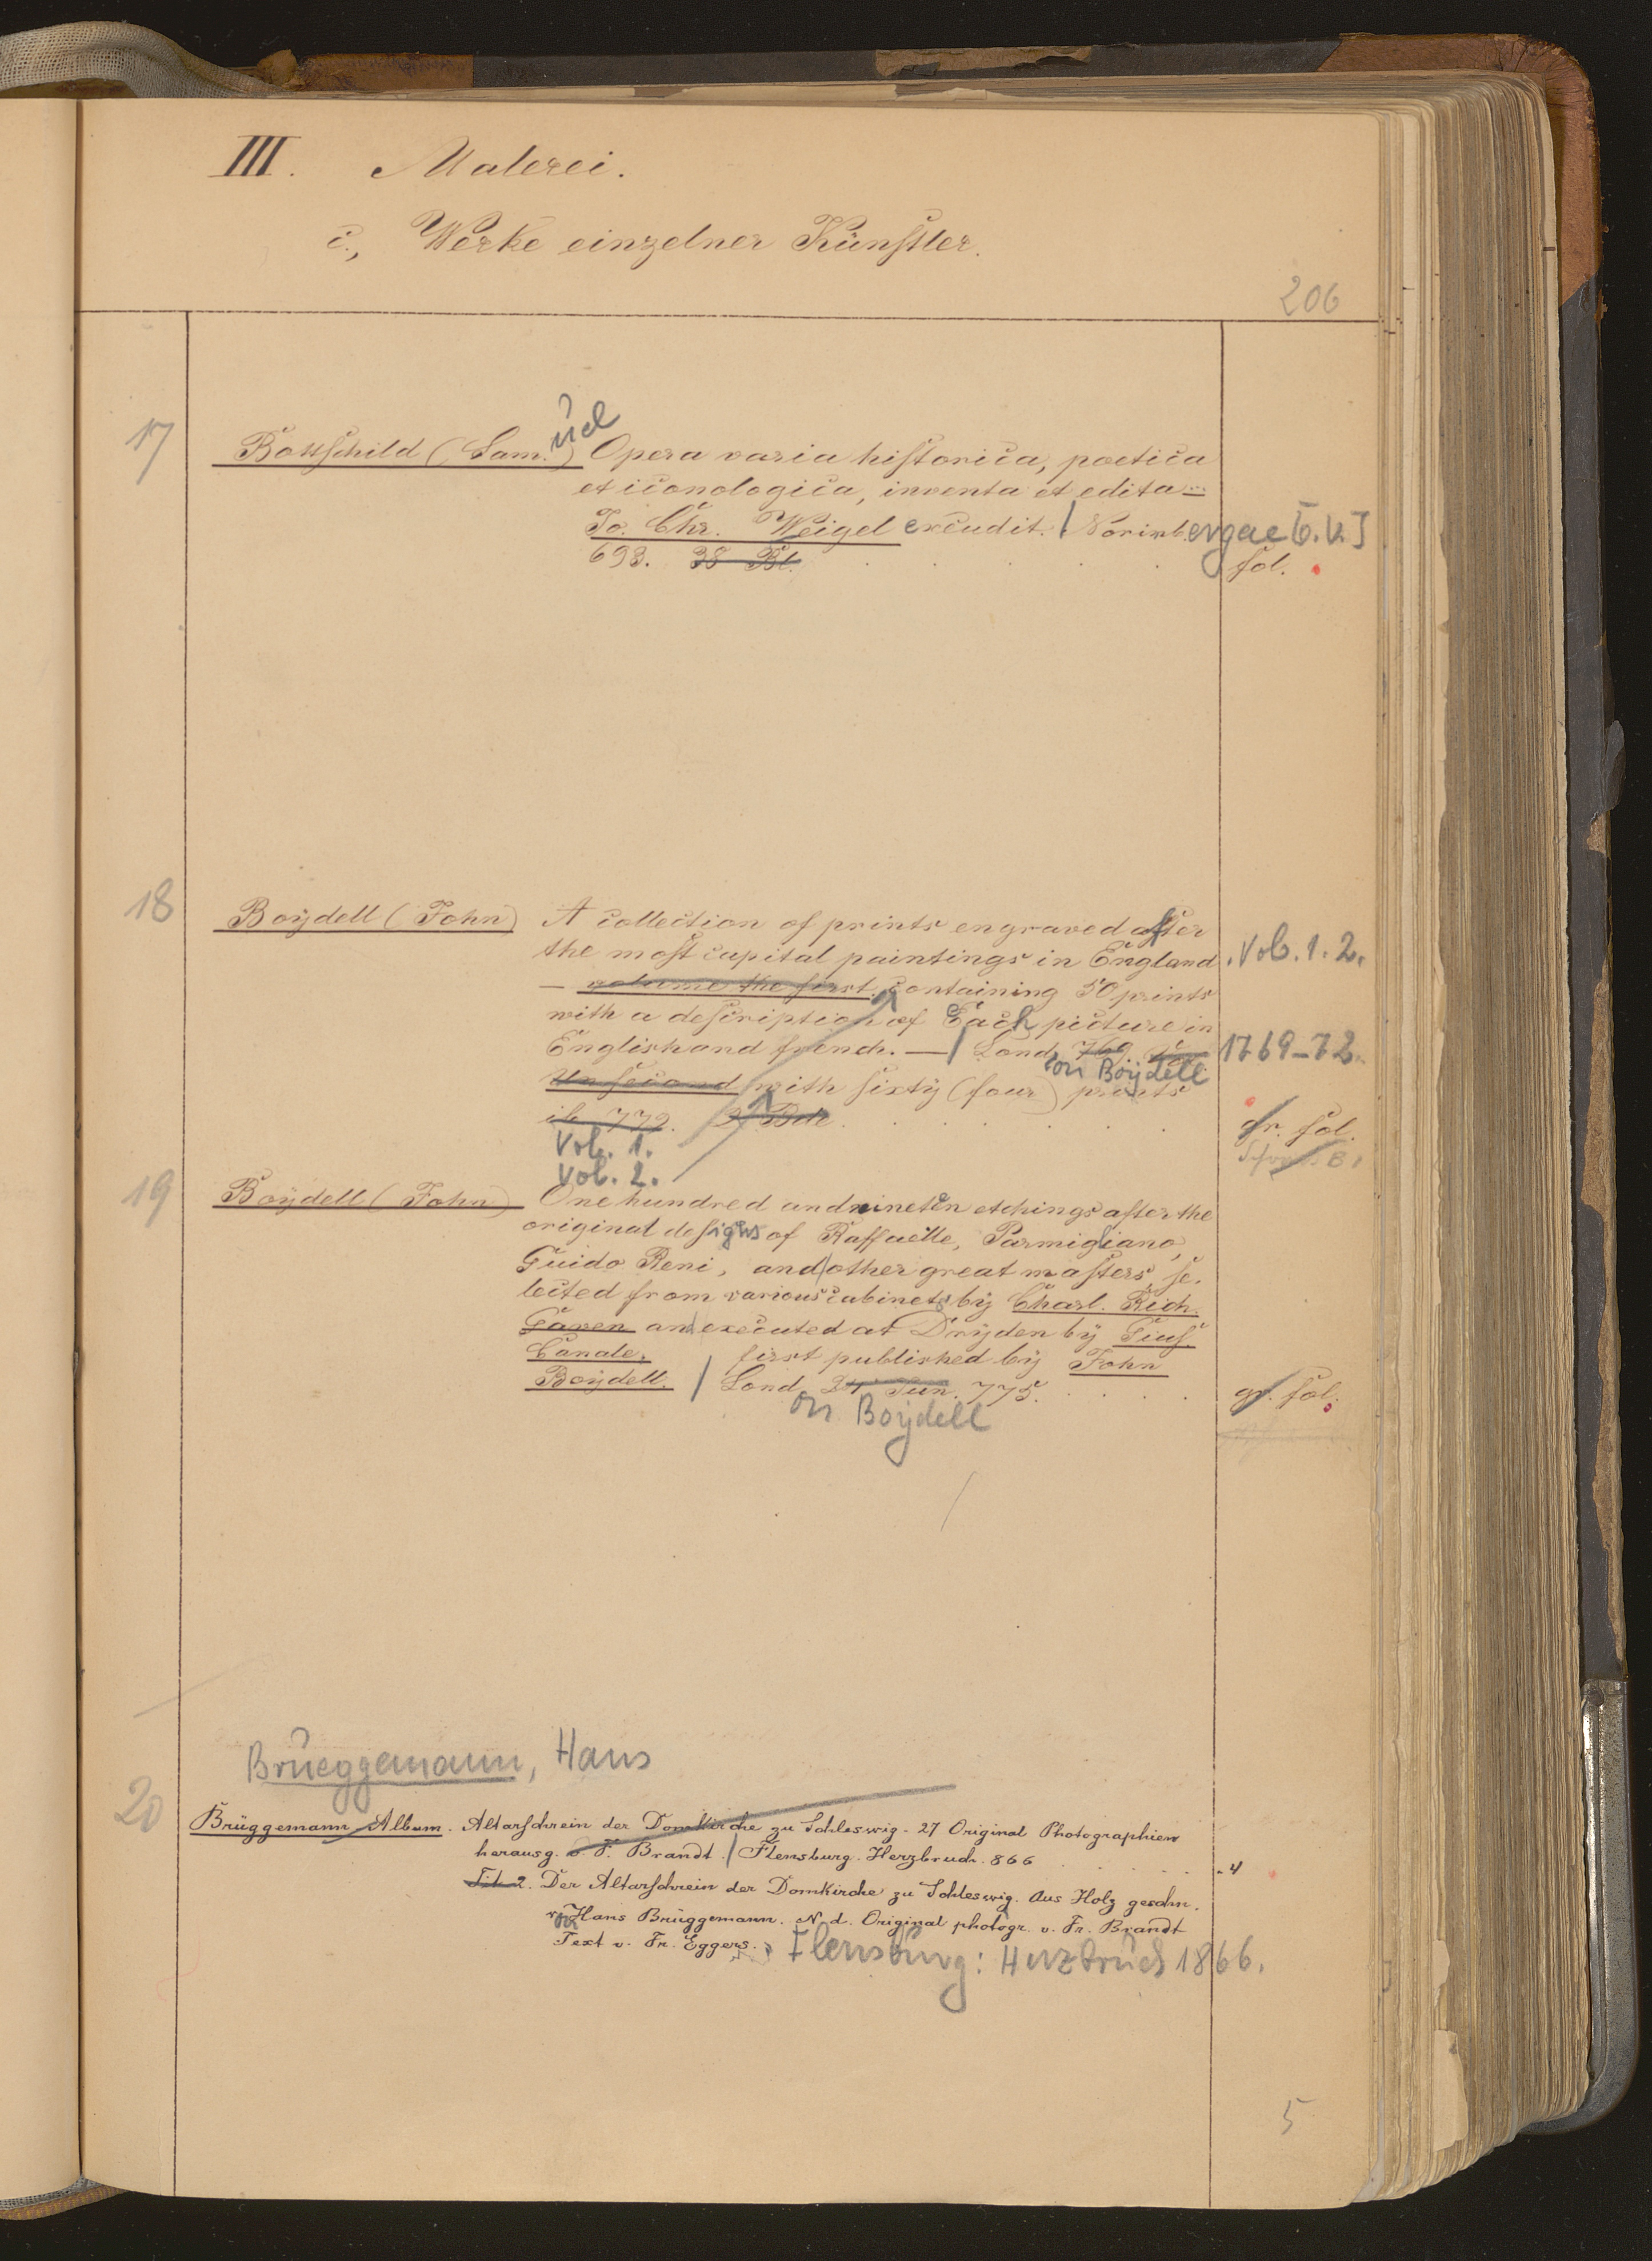 III. Malerei.
c., Werke einzelner Künstler.
206
17
Bottschild (Sam.uel) Opera varia historica, poetica
et iconologica, inventa et edita —
Jo. Chr. Weigel excudit. / Norimb.ergae [o. V.]
693. 38 Bl. fol.
18
Boÿdell (John) A collection of prints engraved after
the most capital paintings in England . Vol. 1. 2.
— volume the first. containing 50 prints
with a description of Each picture in
English and french. — / Lond. 769 1769–72.
on Boÿdell
second with sixtÿ (four) prints
ib 772. 2 Bde. gr. fol.
Vol. 1.
Vol. 2.
19
Boÿdell (John) One hundred and nineten etchings after the
original designs of Raffaelle, Parmigiano,
Guido Reni, and other great masters, se-
lected from various cabinets bÿ Charl. Rich.
and executed at Drÿden bÿ Gius.
Canale, first published bÿ John
Boÿdell. / Lond. 24 Jun. 775. gr. fol.
on Boÿdell
Brueggemann, Hans
20
Brüggemann-Album. Altarschrein der Domkirche zu Schleswig - 27 Original Photographien
herausg. v F. Brandt. / Flensburg. Herzbruch. 866 . 4
Tit 2. Der Altarschrein der Domkirche zu Schleswig. Aus Holz geschn.
von Hans Brüggemann. N. d. Original photogr. v. Fr. Brandt
Text v. Fr. Eggers. Flensburg: Herzbruch 1866.
5